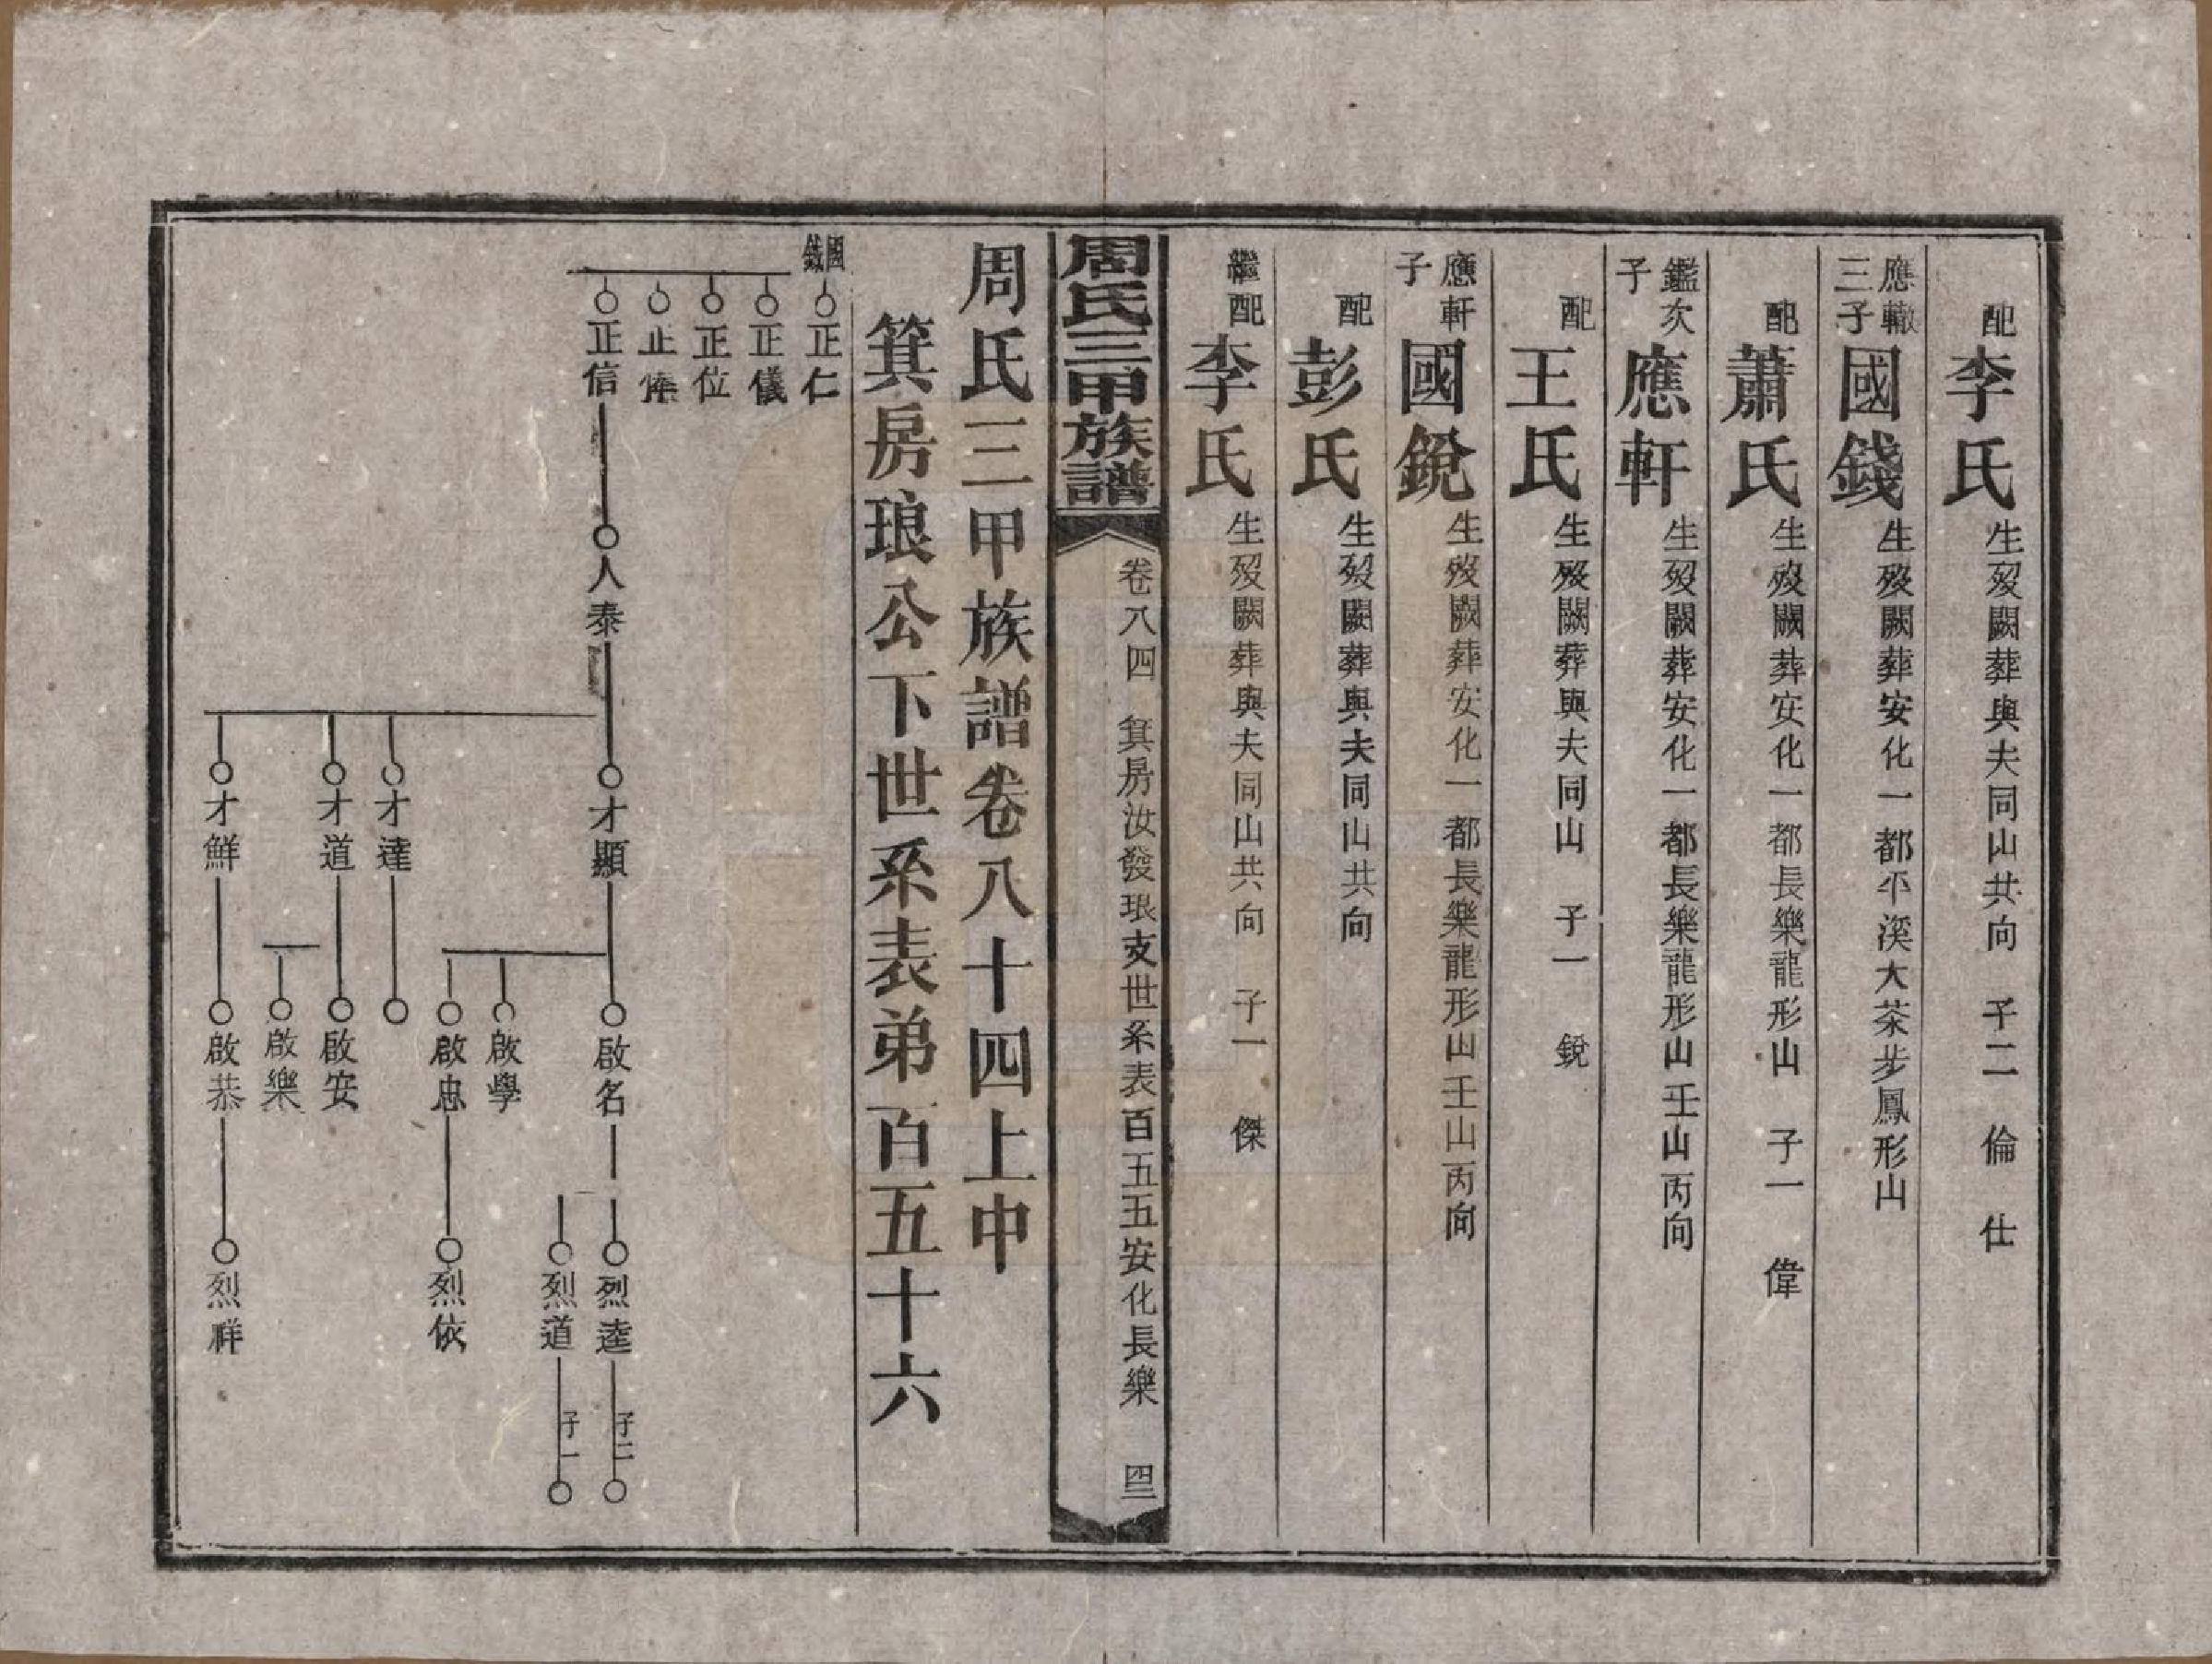 配李氏生歿闕葬與夫同山共向 子二 倫 仕
應轍三子國錢生歿闕葬安化一都平溪大茶步鳳形山
配蕭氏生歿闕葬安化一都長樂龍形山 子一 偉
鑑次子應軒生歿闕葬安化一都長樂龍形山壬山丙向
配王氏生歿闕葬與夫同山 子一 銳
應軒子國銳生歿闕葬安化一都長樂龍形山壬山丙向
配彭氏生歿闕葬與夫同山共向
繼配李氏生歿闕葬與夫同山共向 子一 傑
周氏三甲族譜 卷八四 箕房汝發琅支世系表百五五安化長樂 四三
周氏三甲族譜卷八十四上中
箕房琅公下世系表弟百五十六
國 正仁
正儀
正位
正
正信 人泰 才顯 啟名 烈達 子二
烈道 子一
啟學
啟忠 烈依
才達
才道 啟安
啟樂
才鮮 啟恭 烈祥